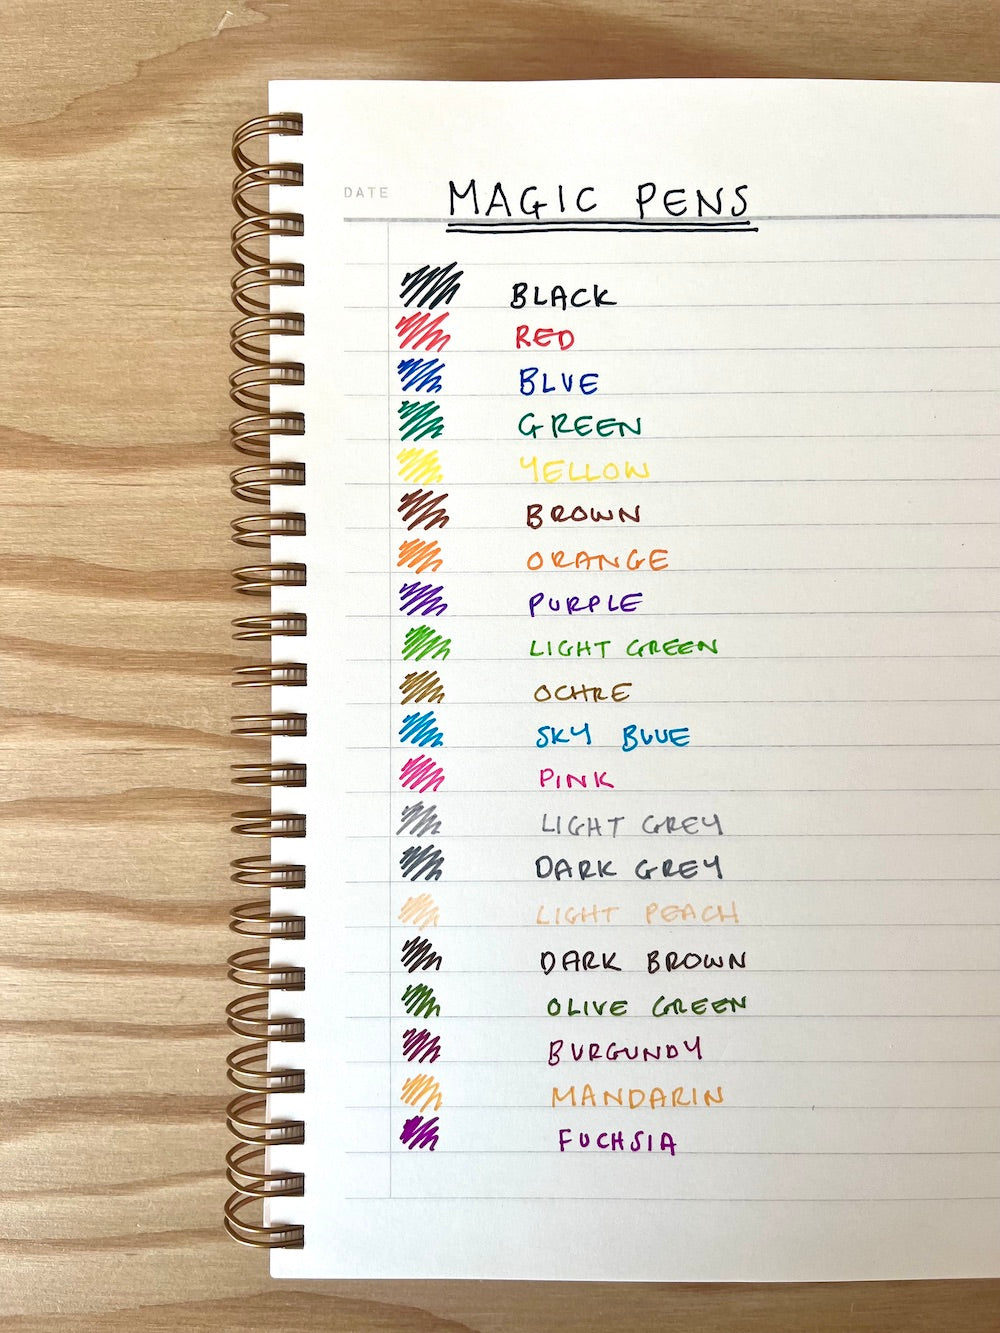 DATE
MAGIC PENS
BLACK
RED
BLUE
GREEN
YELLOW
BROWN
ORANGE
PURPLE
LIGHT GREEN
OCHRE
SKY BLUE
PINK
LIGHT GREY
DARK GREY
LIGHT PEACH
DARK BROWN
OLIVE GREEN
BURGUNDY
MANDARIN
FUCHSIA